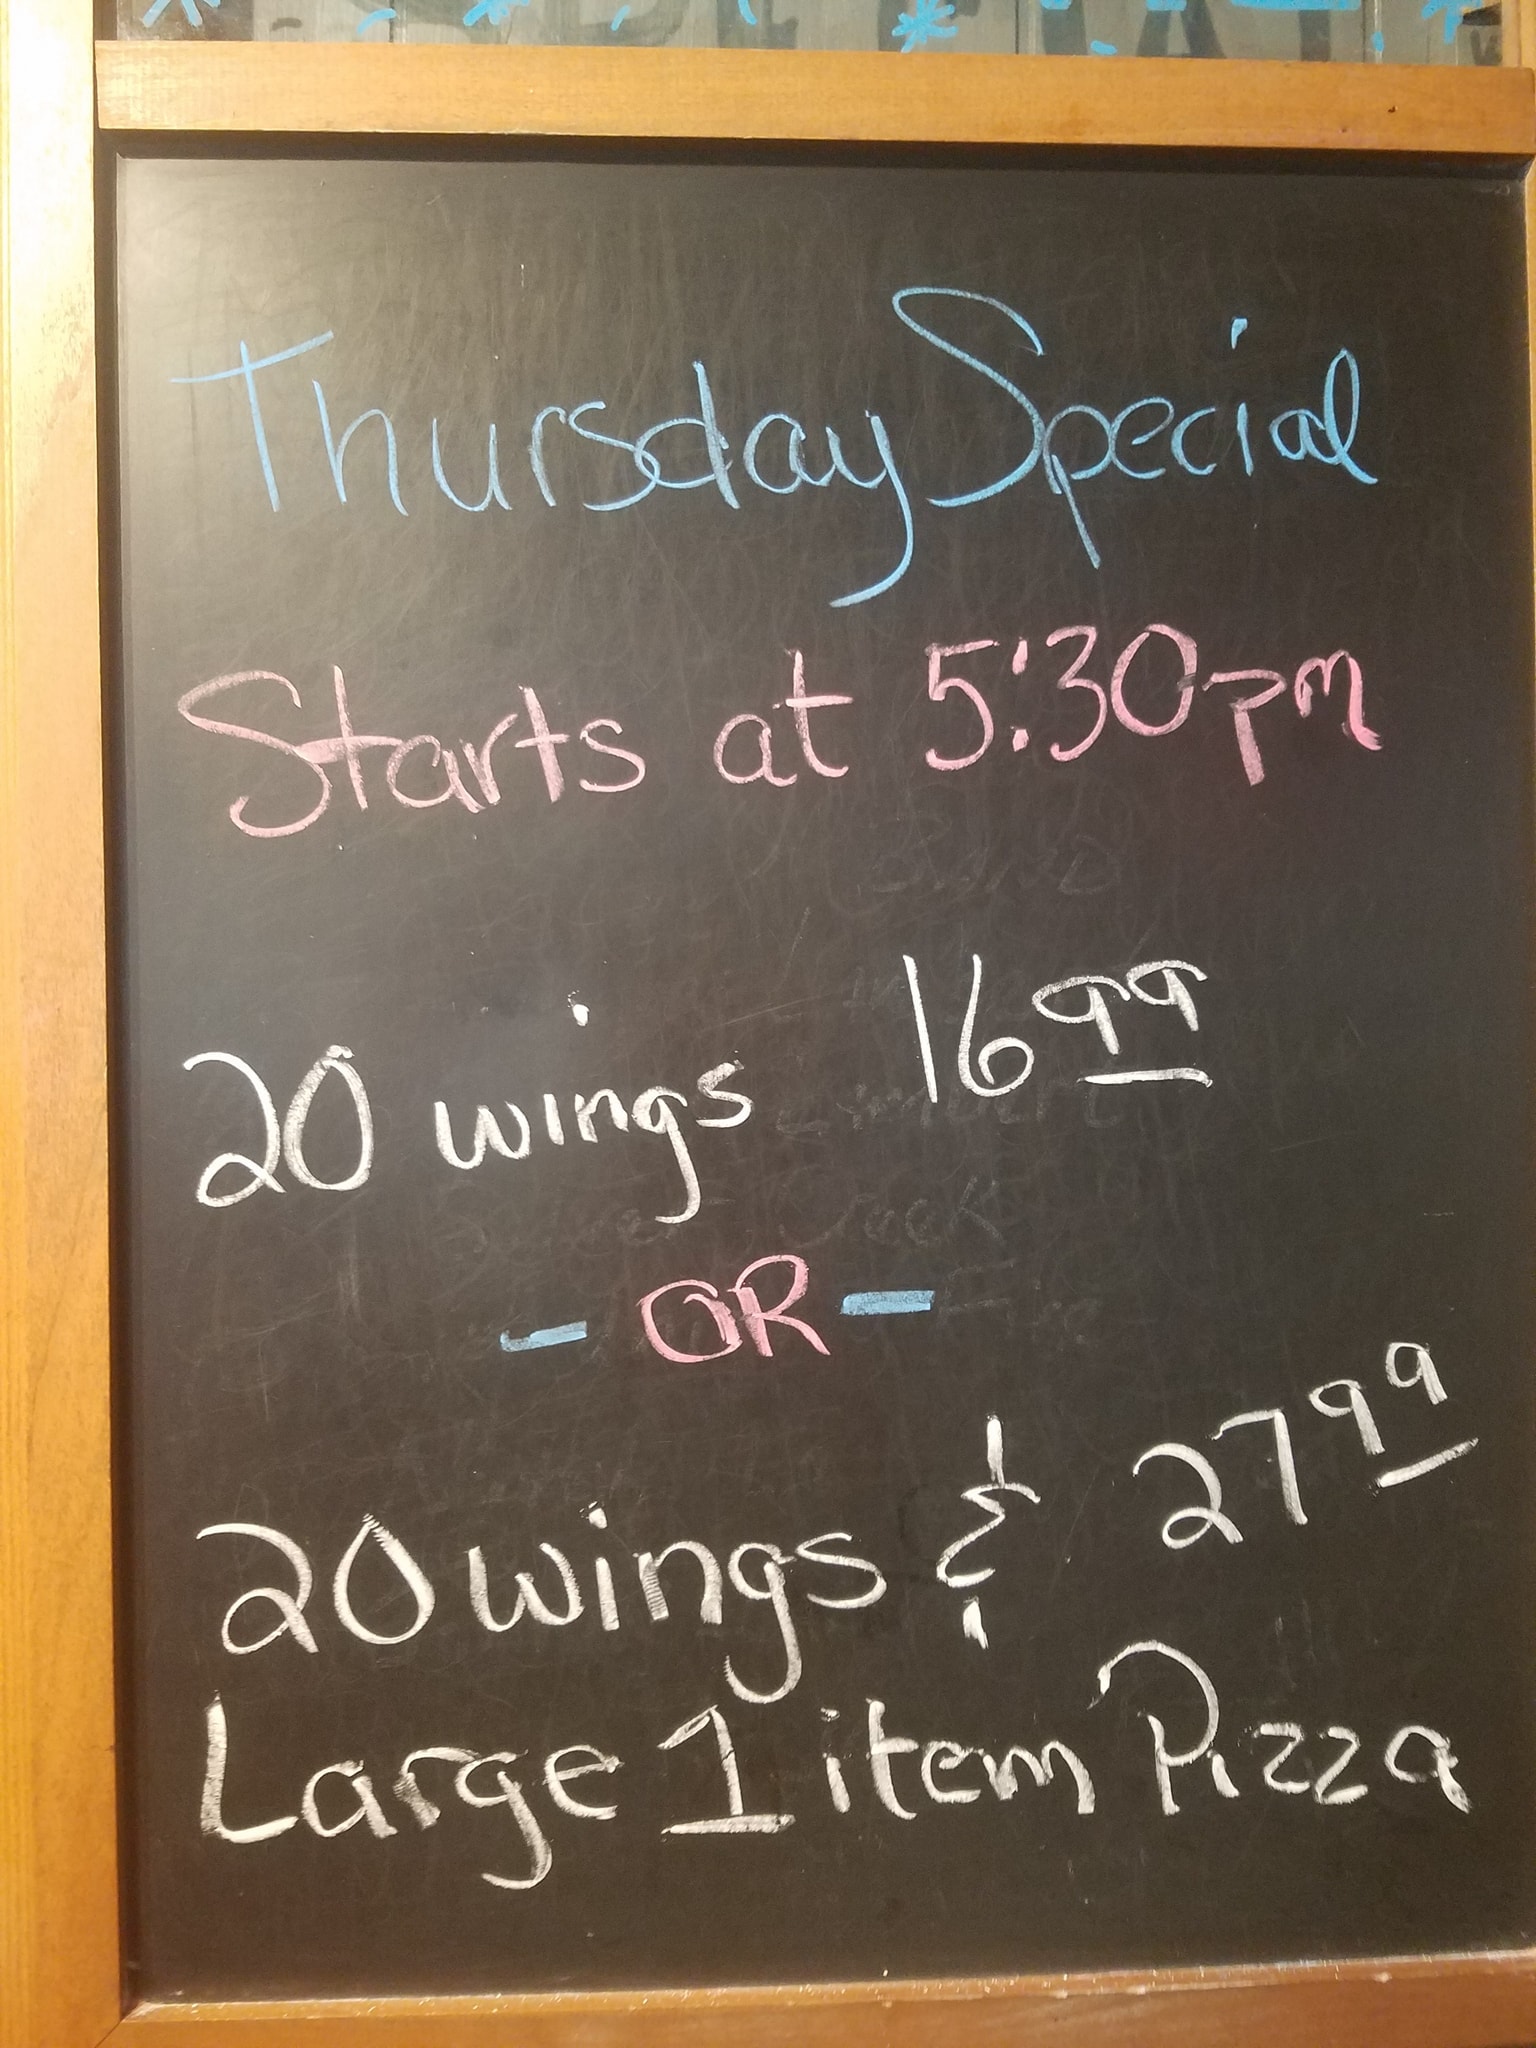 Thursday Special
Starts at 5:30pm
20 wings 16 99
- OR -
20 wings & 27 99
Large 1 item Pizza